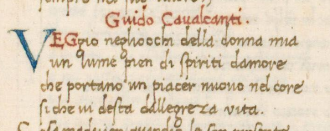 Guido Cavalcanti.
VEGgio negliocchi della donna mia
un lume pien di spiriti damore
che portano un piacer nuovo nel core
si che vi desta dallegreza vita.